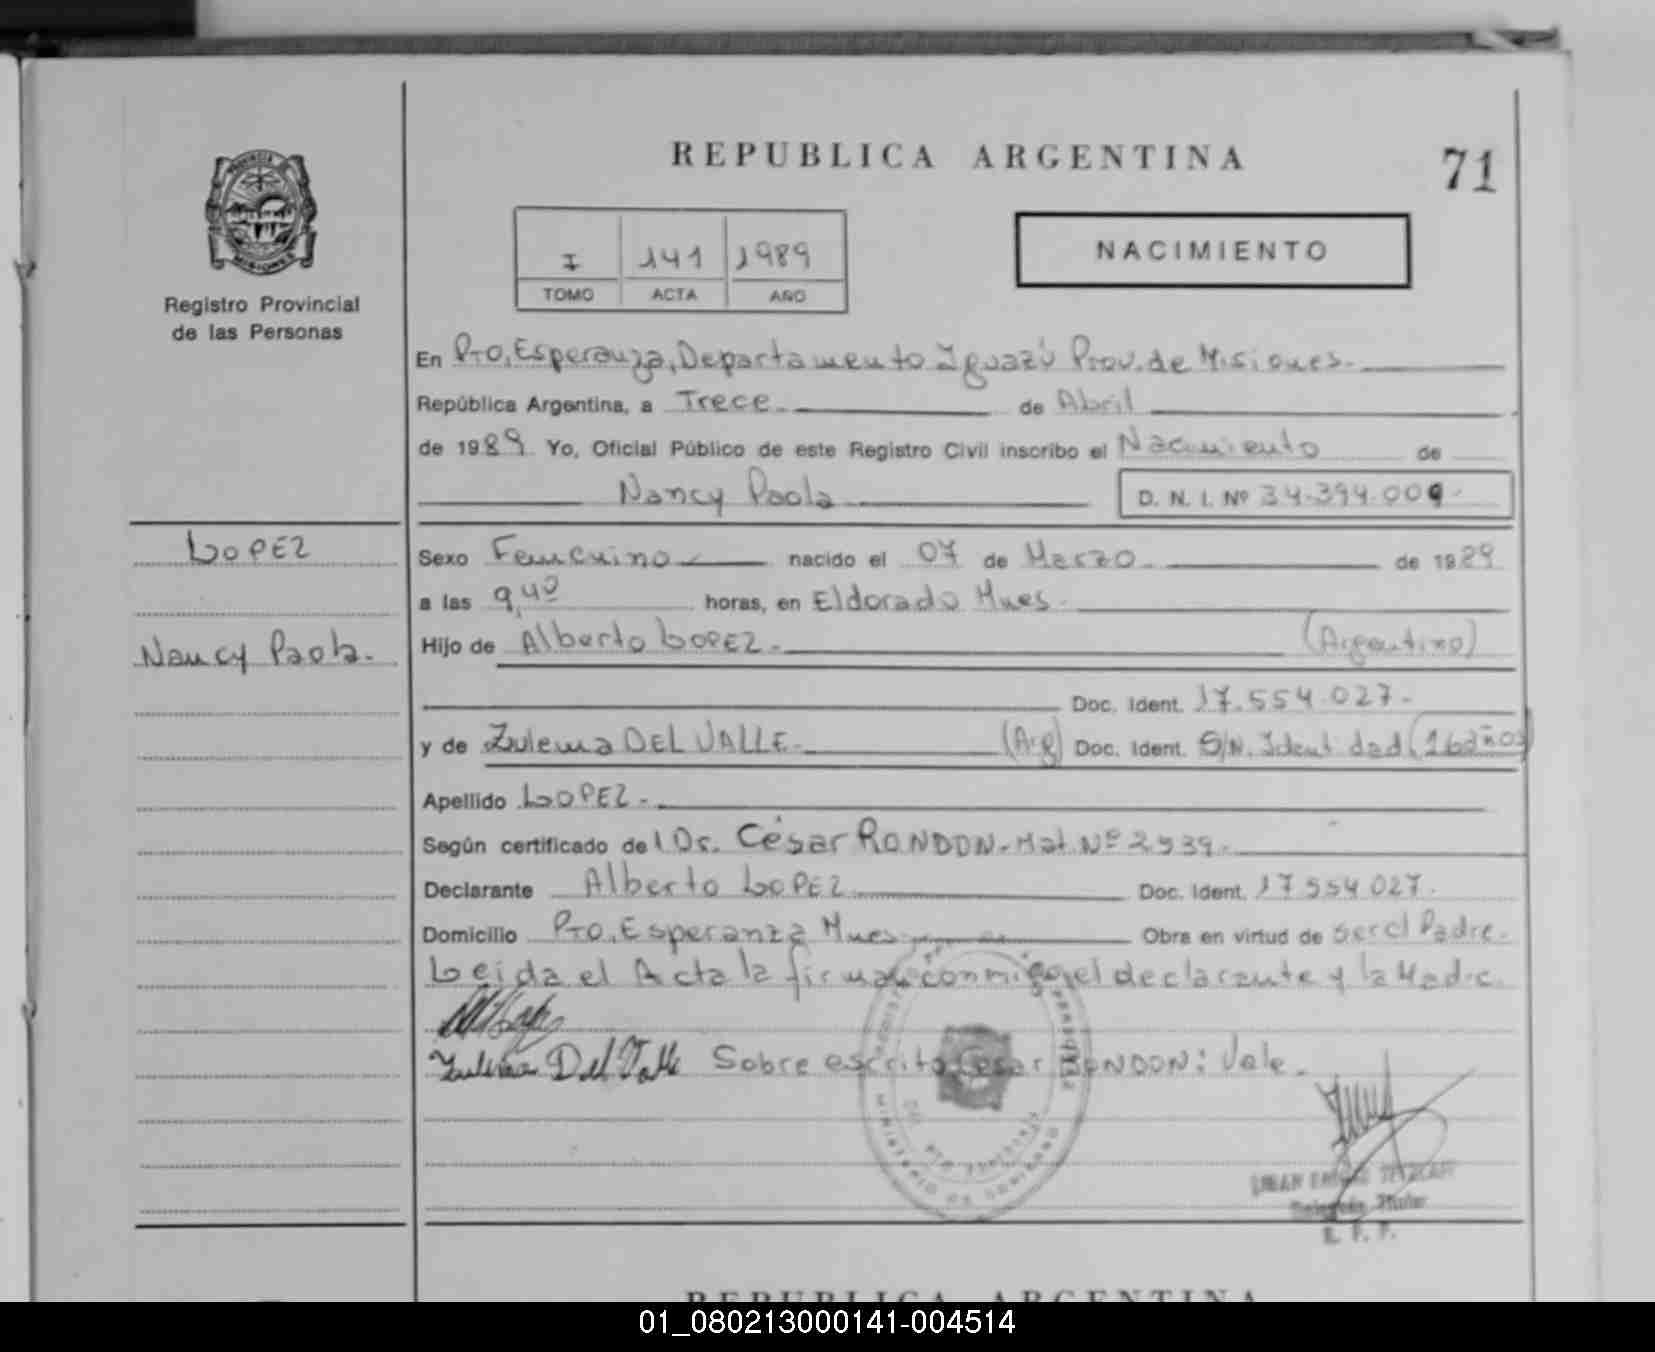 REPUBLICA ARGENTINA
71
PROVINCIA DE MISIONES
Registro Provincial
de las Personas
I 141 1989
TOMO ACTA AÑO
NACIMIENTO
En Pto. Esperanza, Departamento Iguazú Prov. de Misiones.
República Argentina, a Trece de Abril
de 1989 Yo, Oficial Público de este Registro Civil inscribo el Nacimiento de
Nancy Paola D. N. I. Nº 34.394.009.
LOPEZ
Nancy Paola.
Sexo Femenino nacido el 07 de Marzo de 1989
a las 9,40 horas, en Eldorado Mnes.
Hijo de Alberto LOPEZ. (Argentino)
Doc. Ident. 17.554.027.
y de Zulema DEL VALLE. (Arg) Doc. Ident. S/N. Identidad (16 años)
Apellido LOPEZ.
Según certificado del Dr. César RONDON. Mat. Nº 2939.
Declarante Alberto LOPEZ Doc. Ident. 17554027.
Domicilio Pto. Esperanza Mnes Obra en virtud de ser el Padre.
Leida el Acta la firman conmigo, el declarante y la Madre.
Zulema Del Valle Sobre escrito Cesar RONDON: Vale.
MINISTERIO DE GOBIERNO
Delegado Titular
R. P. P.
REPUBLICA ARGENTINA
01_080213000141-004514